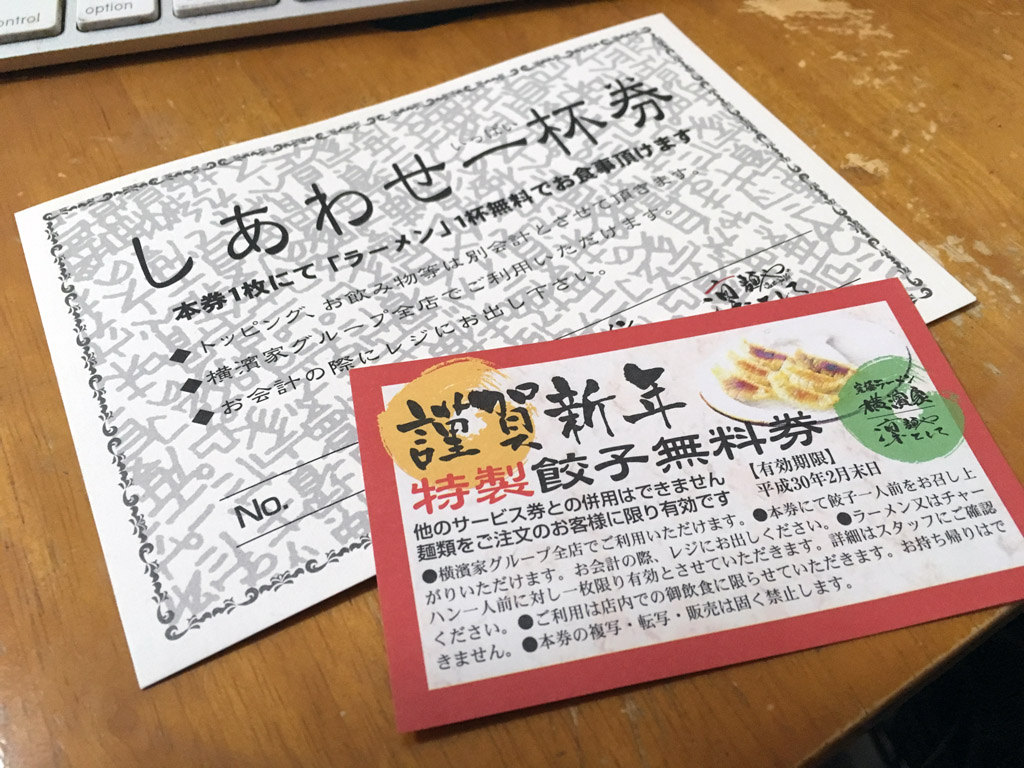 control
option
しあわせ一杯券
いっぱい
本券1枚にて「ラーメン」1杯無料でお食事頂けます
◆トッピング、お飲み物等は別会計とさせて頂きます。
◆横濱家グループ全店でご利用いただけます。
◆お会計の際にレジにお出し下さい。
No.
謹賀新年
特製餃子無料券
他のサービス券との併用はできません
麺類をご注文のお客様に限り有効です
【有効期限】
平成30年2月末日
●横濱家グループ全店でご利用いただけます。●本券にて餃子一人前をお召し上
がりいただけます。お会計の際、レジにお出しください。●ラーメン又はチャー
ハン一人前に対し一枚限り有効とさせていただきます。詳細はスタッフにご確認
ください。●ご利用は店内での御飲食に限らせていただきます。お持ち帰りはで
きません。●本券の複写・転写・販売は固く禁止します。
横濱家